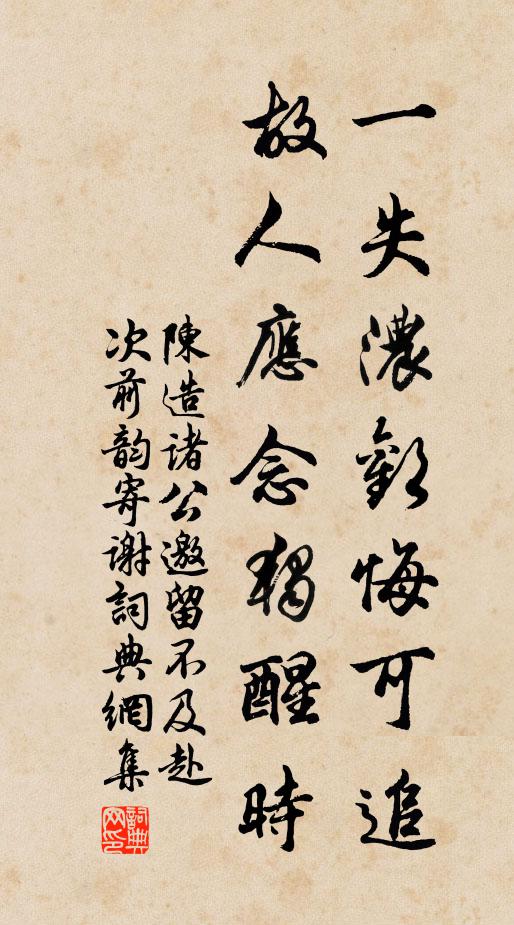 一失濃歡悔可追
故人應念獨醒時
陳造諸公邀留不及赴
次前韵寄謝詞典網集
詞典
网印